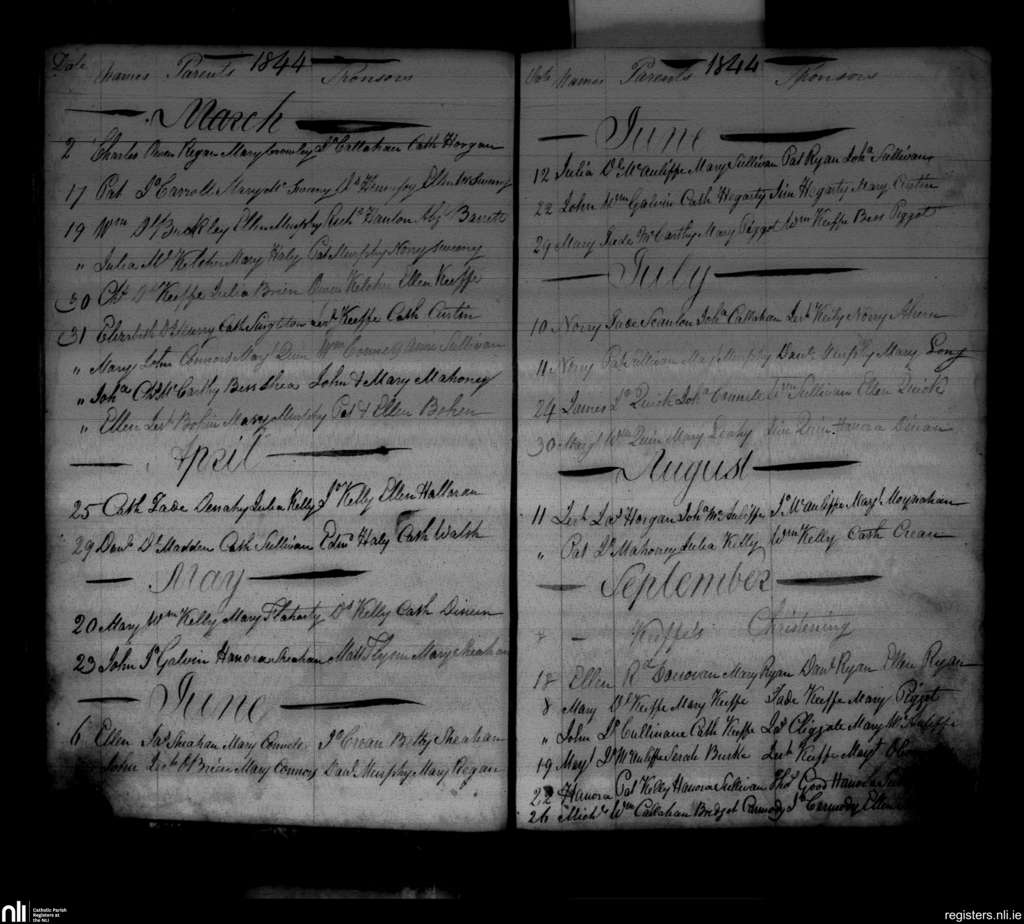 Date Names Parents 1844 Sponsors
March
2 Charles Owen Regan Mary Crowley Jo Callahan Cath Horgan
17 Pat Jo Carroll Mary Mc Swiny Ellen Mc Swiny
19 Wm Buckley Ellen Murphy Richd Hanlon Abj Barrett
" Julia Ml Kelcher Mary Haly Pat Murphy Nory Swiny
30 Keeffe Julia Brien Owen Kelcher Ellen Keeffe
31 Elizabeth Murry Cath Singleton Jerh Keeffe Cath Curtin
" Mary John Connors Mary Quin Wm Connell Anne Sullivan
" Joha Mc Carthy Bess Shea John & Mary Mahoney
" Ellen Jerh Bohen Mary Murphy Pat & Ellen Bohen
April
25 Cath Tade Denahy Julia Kelly Jo Kelly Ellen Halloran
29 Danl Ds Madden Cath Sullivan Edmd Haly Cath Walsh
May
20 Mary Wm Kelly Mary Flaherty Ds Kelly Cath Dineen
23 John Jo Galvin Hanora Sheahan Matt Flynn Mary Sheahan
June
6 Ellen Jas Sheahan Mary Connele Jo Crean Betty Sheahan
John Jerh O Brien Mary Connors Danl Murphy Mary Regan
Date Names Parents 1844 Sponsors
June
12 Julia Ds McAuliffe Mary Sullivan Pat Ryan Joha Sullivan
22 John Wm Galvin Cath Hegarty Jim Hegarty Mary Curtin
29 Mary Tade McCarthy Mary Piggot Wm Keeffe Bess Piggot
July
10 Norry Tade Scanlon Joha Callahan Jerh Kiely Norry Ahern
11 Norry Pat Sullivan Mary Murphy Danl Murphy Mary Long
24 James Jo Quirk Joha Connele Wm Sullivan Ellen Quirk
30 Mary Wm Quin Mary Leahy Jim Quin Hanora Dinan
August
11 Jerh Jas Horgan Joha McAuliffe Jo McAuliffe Margt Moynahan
" Pat Ds Mahoney Julia Kelly Wm Kelly Cath Crean
September
8 Keeffe's Christening
18 Ellen Rd Donovan Mary Ryan Danl Ryan Ellen Ryan
8 Mary Ds Keeffe Mary Keeffe Tade Keeffe Mary Piggot
" John Cullinane Cath Keeffe Jas Clizzale Mary McAuliffe
19 Margt Ds McAuliffe Sarah Burke Jerh Keeffe Margt
22 Hanora Pat Kelly Hanora Sullivan Thos Good Hanora
26 Michl Wm Callahan Bridget Carmody Jo Carmody Ellen
nli Catholic Parish
Registers at
the NLI
registers.nli.ie